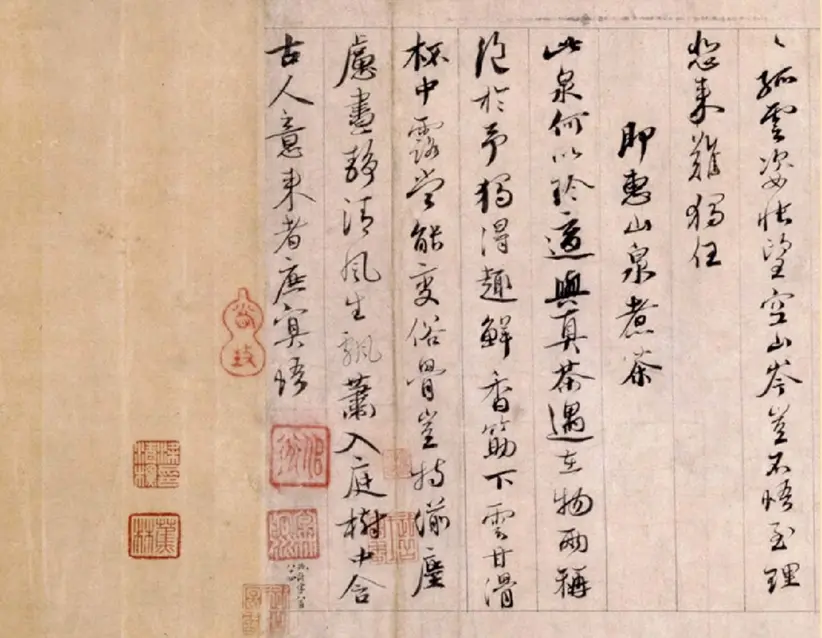 〻孤雲姿悵望空山岑豈不悟至理
悲來難獨任
即惠山泉煮茶
此泉何以珍適與真茶遇在物兩稱
絕於予獨得趣鮮香筯下雲甘滑
杯中露當能變俗骨豈特湔塵
慮晝靜清風生飄蕭入庭樹中含
古人意來者庶冥悟
蕉林